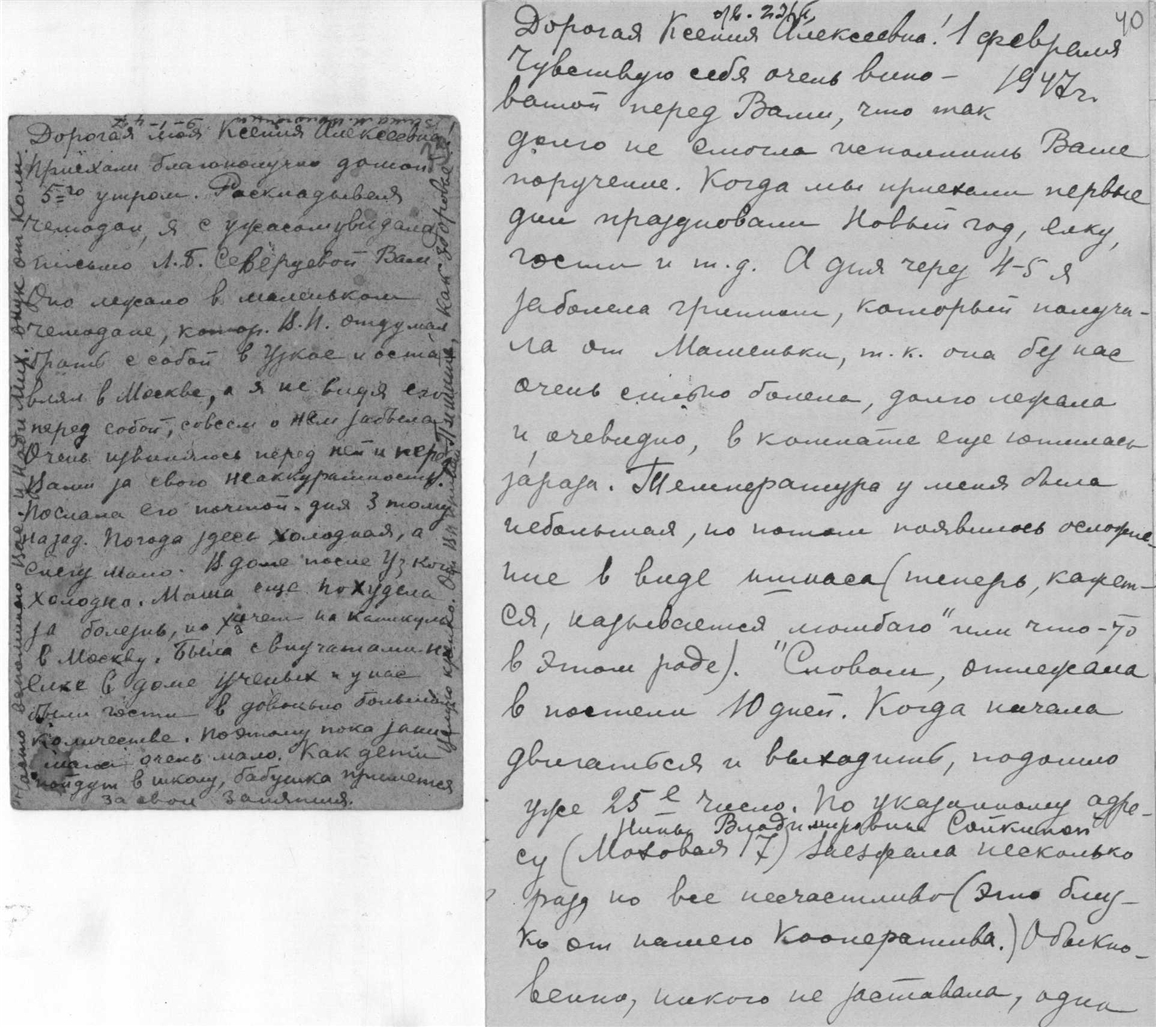 Дорогая моя Ксения Алексеевна!
Приехали благополучно домой
5го утром. Раскладывая
чемодан, я с ужасом увидала
письмо Л.Б. Северцевой Вам.
Оно лежало в маленьком
чемодане, котор. В.Н. отдумал
брать с собой в Узкое и оста
влял в Москве, а я не видя его
перед собой, совсем о нем забыла.
Очень извиняюсь перед ней и перед
Вами за свою неаккуратность.
Послала его почтой дня 3 тому
назад. Погода здесь холодная, а
снегу мало. В доме после Узкого
холодно. Маша еще похудела
за болезнь, но хочет на каникулы
в Москву. Была с внучатами на
елке в доме ученых и у нас
были гости в довольно большом
количестве. Поэтому пока зани
малась очень мало. Как дети
пойдут в школу, бабушка примется
за свои занятия.
Часто вспоминаю Вас и Ваших внук от Коли.
Целую крепко.
Пишите, как здоровье
40
Дорогая Ксения Алексеевна! 1 февраля
1947 г.
Чувствую себя очень вино-
ватой перед Вами, что так
долго не смогла исполнить Ваше
поручение. Когда мы приехали первые
дни праздновали Новый год, елку,
гости и т.д. А дня через 4-5 я
заболела гриппом, который получи-
ла от Машеньки, т.к. она без нас
очень сильно болела, долго лежала
и, очевидно, в комнате еще ютилась
зараза. Температура у меня была
небольшая, но потом появилось осложне-
ние в виде ишиаса (теперь, кажет-
ся, называется „люмбаго" или что-то
в этом роде). Словом, отлежала
в постели 10 дней. Когда начала
двигаться и выходить, подошло
уже 25е число. По указанному адре-
Нины Владимировны Сойкиной
су (Моховая 17) заезжала несколько
раз, но все несчастливо (это близ-
ко от нашего Кооператива.) Обыкно-
венно, никого не заставала, одна